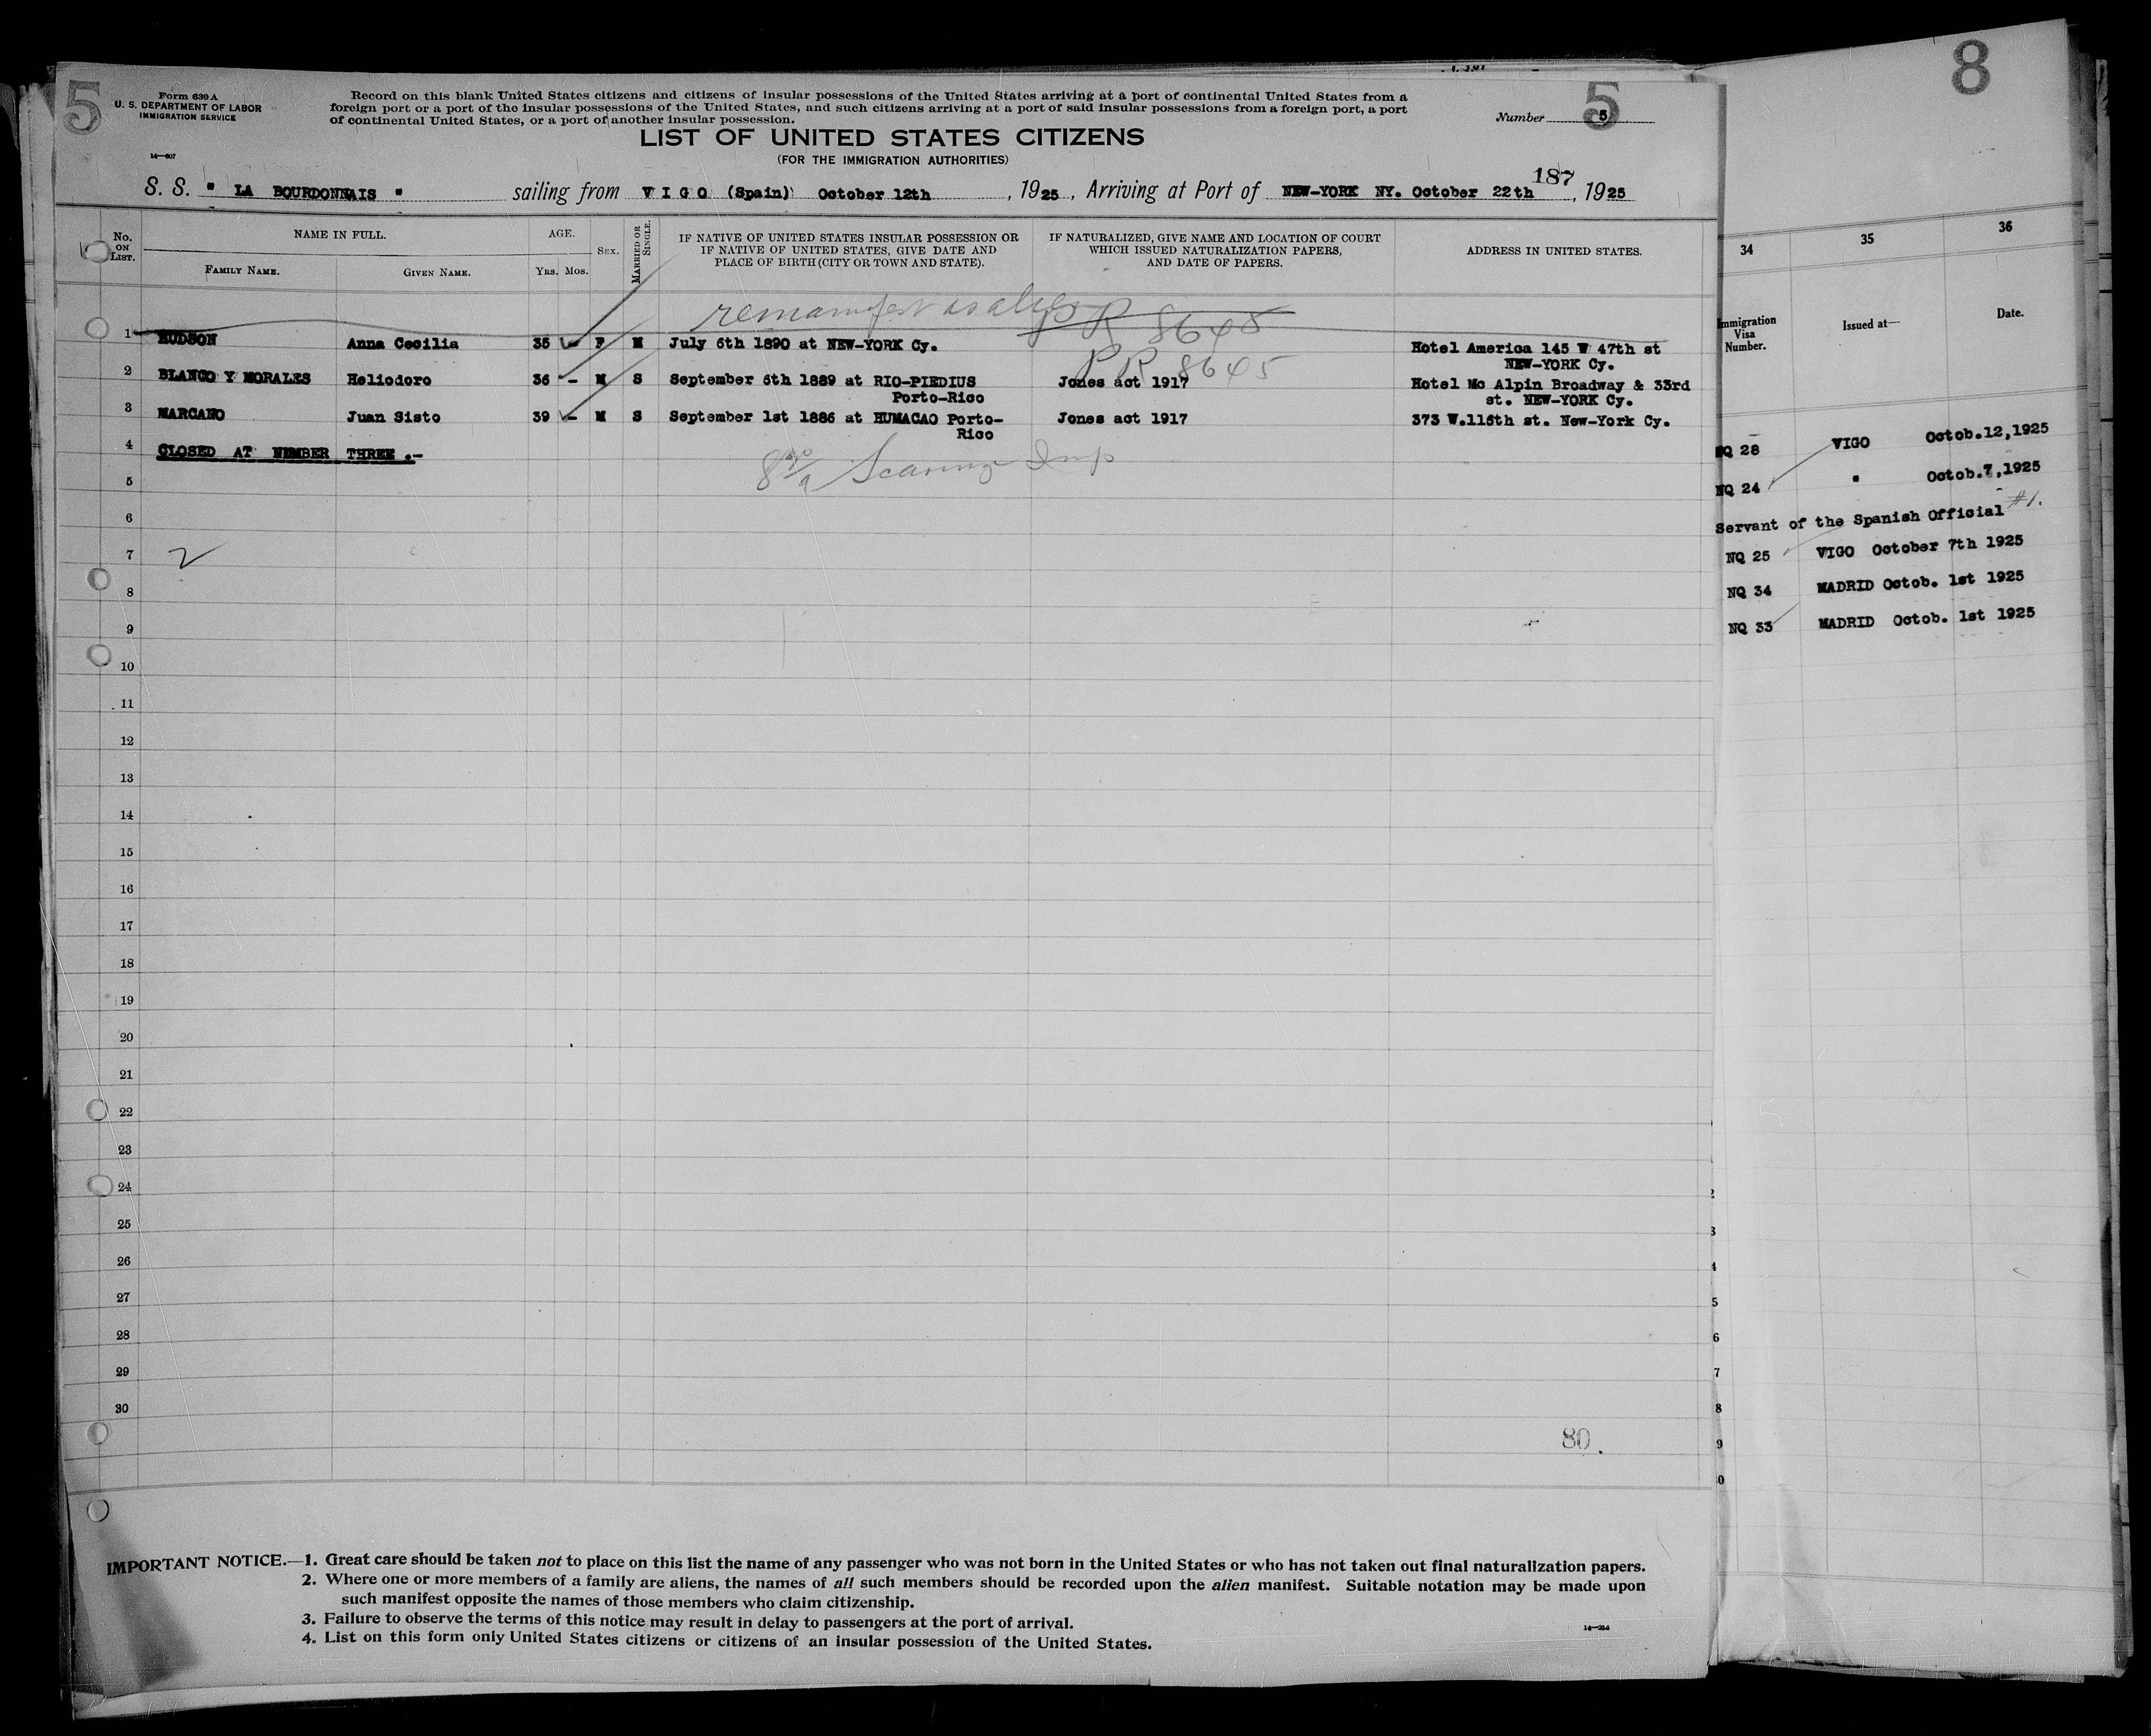 5
8
Form 630 A
U. S. DEPARTMENT OF LABOR
IMMIGRATION SERVICE
Record on this blank United States citizens and citizens of insular possessions of the United States arriving at a port of continental United States from a
foreign port or a port of the insular possessions of the United States, and such citizens arriving at a port of said insular possessions from a foreign port, a port
of continental United States, or a port of another insular possession.
Number 5
5
LIST OF UNITED STATES CITIZENS
(FOR THE IMMIGRATION AUTHORITIES)
187
S. S. " LA BOURDONNAIS " sailing from V I G O (Spain) October 12th , 1925 , Arriving at Port of NEW-YORK NY. October 22th , 1925
No. ON LIST.
NAME IN FULL.
FAMILY NAME.
GIVEN NAME.
AGE.
YRS. MOS.
SEX.
MARRIED OR SINGLE.
IF NATIVE OF UNITED STATES INSULAR POSSESSION OR
IF NATIVE OF UNITED STATES, GIVE DATE AND
PLACE OF BIRTH (CITY OR TOWN AND STATE).
IF NATURALIZED, GIVE NAME AND LOCATION OF COURT
WHICH ISSUED NATURALIZATION PAPERS,
AND DATE OF PAPERS.
ADDRESS IN UNITED STATES.
remanifest as alien
PR 8645
1 HUDSON Anna Cecilia 35 F M July 6th 1890 at NEW-YORK Cy. Hotel America 145 W 47th st
NEW-YORK Cy.
PR 8645
2 BLANCO Y MORALES Heliodoro 36 - M S September 6th 1889 at RIO-PIEDIUS Jones act 1917 Hotel Mc Alpin Broadway & 33rd
Porto-Rico st. NEW-YORK Cy.
3 MARCANO Juan Sisto 39 - M S September 1st 1886 at HUMACAO Porto- Jones act 1917 373 W.116th st. New-York Cy.
Rico
4 CLOSED AT NEMBER THREE .-
5
6
7 2
8
9
10
11
12
13
14
15
16
17
18
19
20
21
22
23
24
25
26
27
28
29
30
80.
IMPORTANT NOTICE.—1. Great care should be taken not to place on this list the name of any passenger who was not born in the United States or who has not taken out final naturalization papers.
2. Where one or more members of a family are aliens, the names of all such members should be recorded upon the alien manifest. Suitable notation may be made upon
such manifest opposite the names of those members who claim citizenship.
3. Failure to observe the terms of this notice may result in delay to passengers at the port of arrival.
4. List on this form only United States citizens or citizens of an insular possession of the United States.
34 35 36
Immigration
Visa
Number.
Issued at—
Date.
NQ 28 VIGO Octob.12,1925
NQ 24 " Octob.7,1925
Servant of the Spanish Official #1.
NQ 25 VIGO October 7th 1925
NQ 34 MADRID Octob. 1st 1925
NQ 33 MADRID Octob. 1st 1925
2
3
4
5
6
7
8
9
0